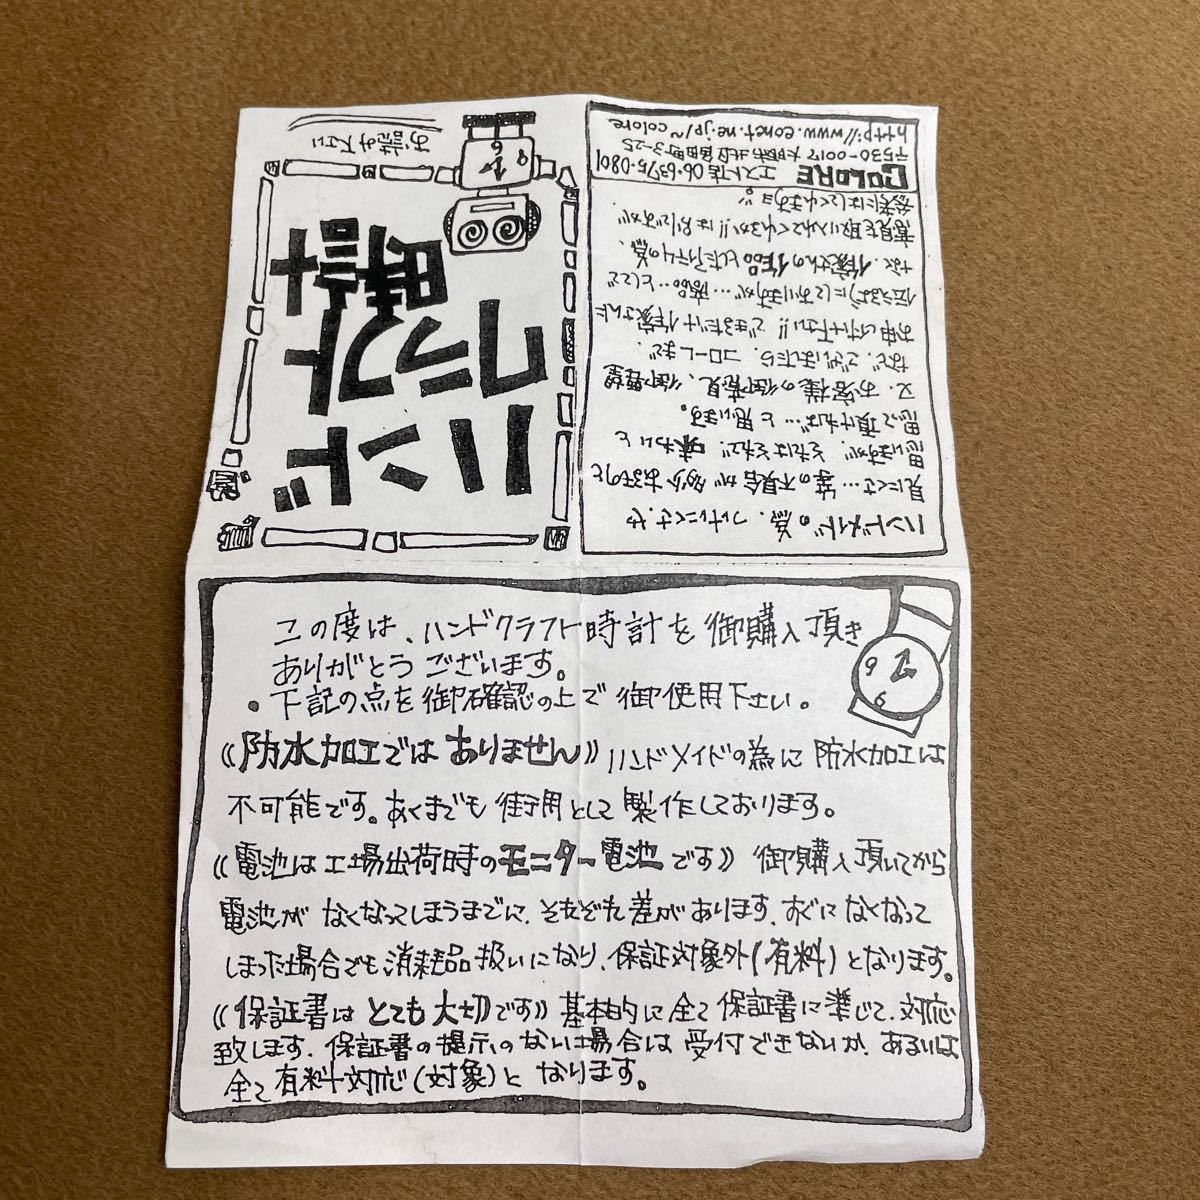 お読み下さい
ハンド
クラフト
時計
ハンドメイドの為、つけにくさ、や
見にくさ…等の不具合が多少あるものと
思いますが、それはそれで、味わいと
思って頂ければ…と思います。
又、お客様の御意見、御要望
など、ございましたら、コローレまで、
お申し付け下さい!!できるだけ作家さんに
伝えるようにしておりますが…商品…として
なく、作家さんの作品としたアイテムの為、
意見を取り入れてくれるか!!はわかりですが
参考にはしてくれますョ。
COLORE エスト店 06・6375・0801
〒530-0017 大阪市北区角田町3-25
http://www.eonet.ne.jp/~colore
この度は、ハンドクラフト時計を御購入頂き
ありがとうございます。
・下記の点を御確認の上で御使用下さい。
《防水加工ではありません》ハンドメイドの為に防水加工は
不可能です。あくまでも街用として製作しております。
《電池は工場出荷時のモニター電池です》御購入頂いてから
電池がなくなってしまうまでに、それぞれ差があります、すぐになくなって
しまった場合でも消耗品扱いになり、保証対象外(有料)となります。
《保証書はとても大切です》基本的に全て保証書に準じて、対応
致します、保証書の提示のない場合は受付できないか、あるいは
全て有料対応(対象)となります。